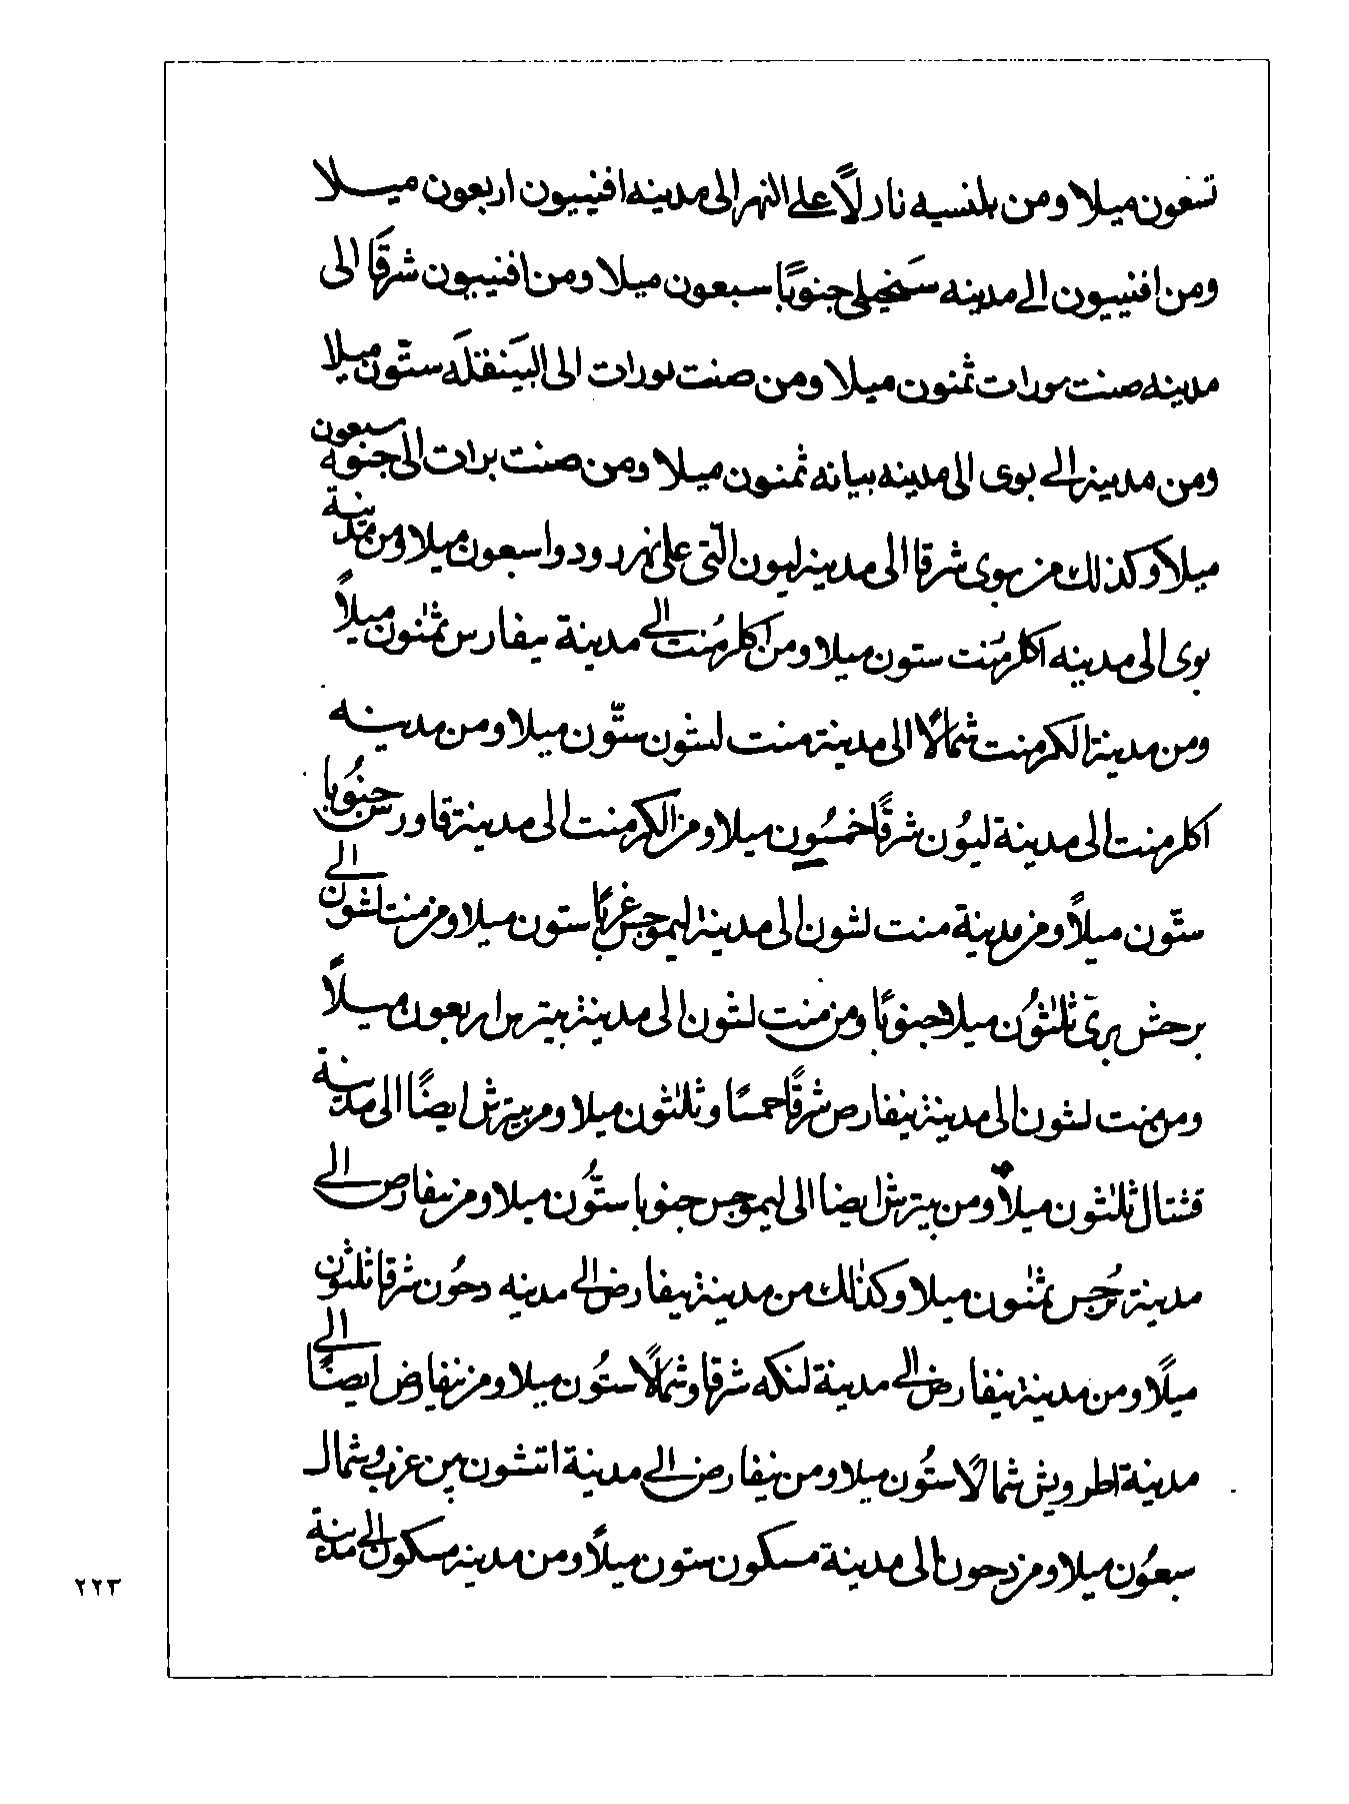 تسعون ميلا ومن بلنسيه نازلًا على النهر الى مدينه افنييون اربعون ميلا
ومن افنييون الى مدينه سَنجيلى جنوبًا سبعون ميلا ومن افنييون شرقًا الى
مدينه صنت بورات ثمنون ميلا ومن صنت بورات الى البَينقلَه ستّون ميلا
ومن مدينة الى بوى الى مدينه بيانه ثمنون ميلا ومن صنت برات الى جنوه سبعون
ميلاً وكذلك من بوى شرقا الى مدينة ليون التّى على نهر رودوا سبعون ميلا ومن مدينة
بوى الى مدينه اكلرمُنت ستون ميلا ومن اكلرمُنت الى مدينة نيفارس ثمٰنون ميلاً
ومن مدينة الكرمنت شمالًا الى مدينة منت لشون ستّون ميلا ومن مدينه
اكلرمنت الى مدينة ليُون شرقًا خمسُون ميلا ومن الكرمنت الى مدينة قاورس جنُوبا
ستّون ميلاً ومن مدينة منت لشون الى مدينة ليموجس غربًا ستون ميلا ومن منت لشون الى
برحش برىّ ثلٰثُون ميلا جنوبًا ومن منت لشون الى مدينة بيترش اربعون ميلاً
ومن منت لشون الى مدينة نيفارص شرقًا خمسًا وثلٰثون ميلا ومن بيترش ايضًا الى مدينة
قشتال ثلٰثون ميلا ومن بيترش ايضا الى ليموجس جنوبا ستُّون ميلا ومن نيفارص الى
مدينة برُجس ثمٰنون ميلا وكذٰلك من مدينة نيفارض الى مدينه دجُون شرقا ثلثون
ميلًا ومن مدينة نيفارض الى مدينة لنكه شرقا وشمالًا ستُون ميلا ومن نيفارض ايضًا الى
مدينة اطرويش شمالًا ستُون ميلا ومن نيفارض الى مدينة انتشون بين غرب وشمال
سبعُون ميلا ومن دجون الى مدينة مسكون ستون ميلاً ومن مدينة مسكون الى مدينة
٢٢٣